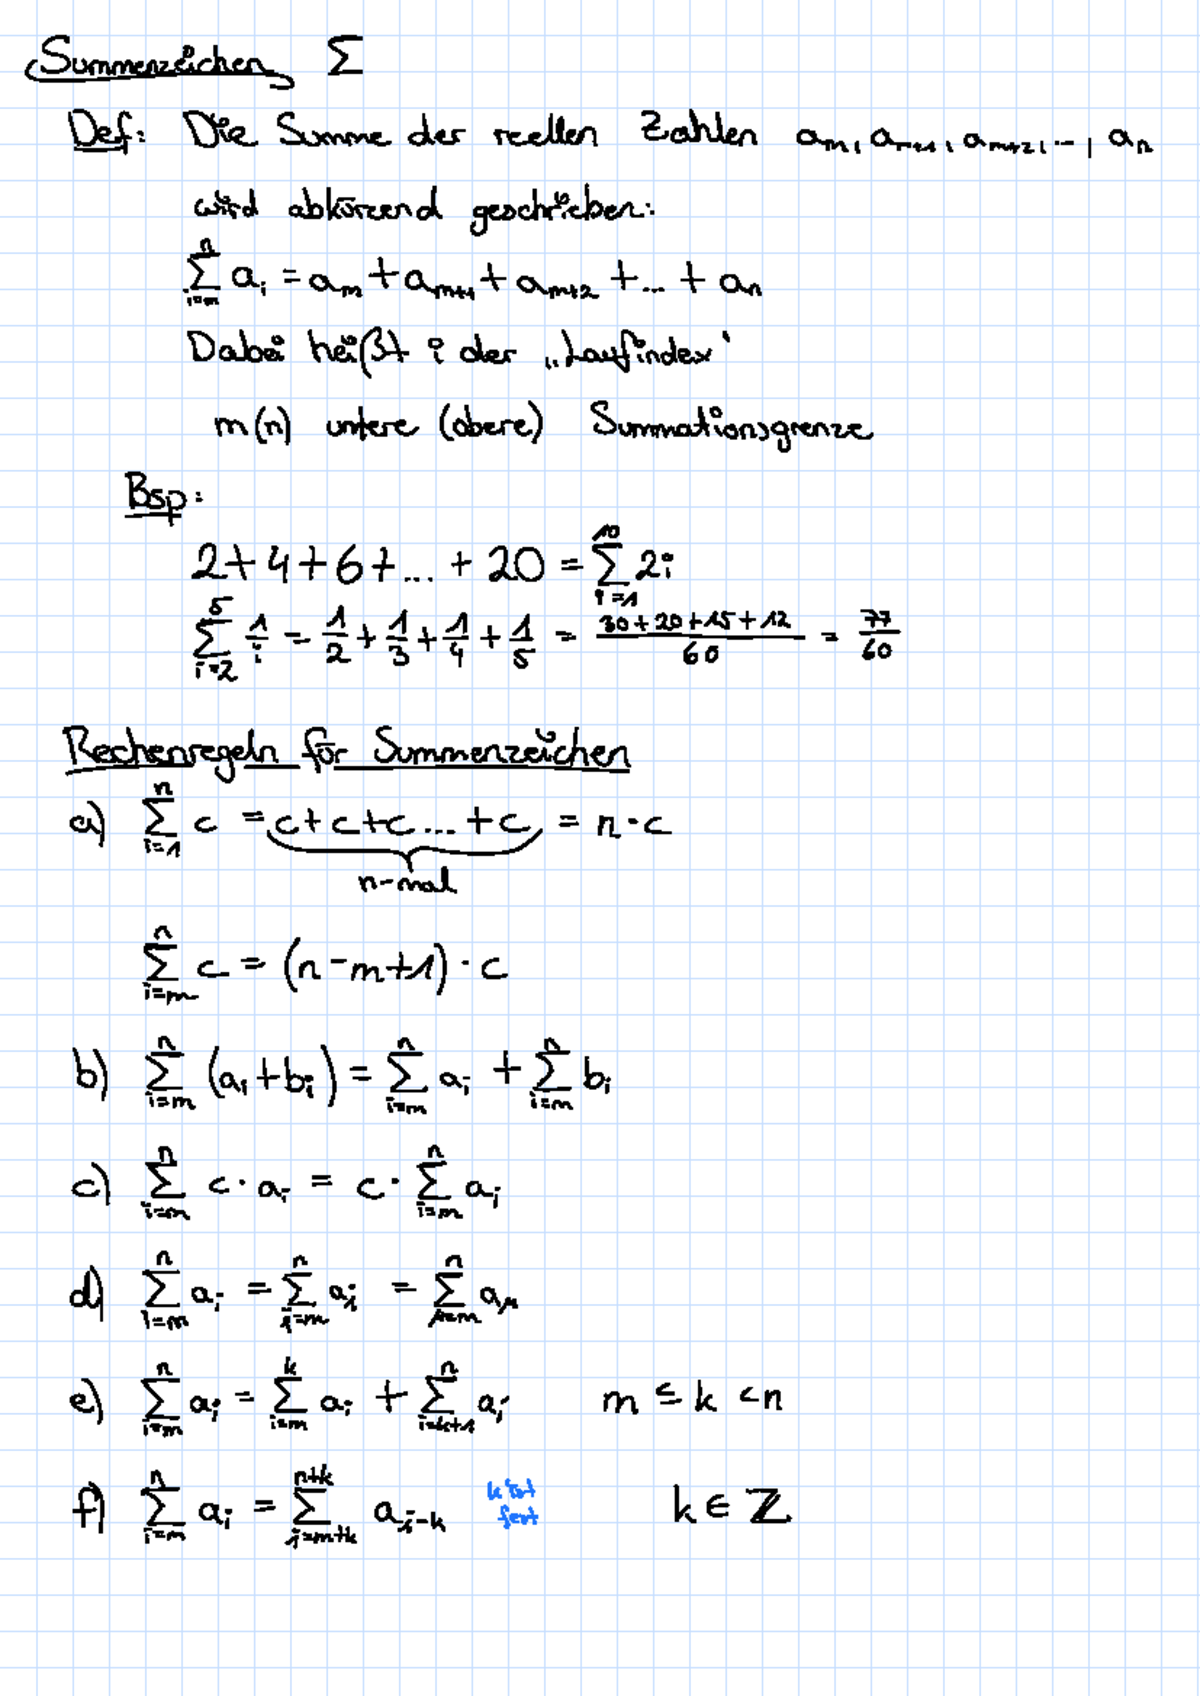 Summenzeichen Σ
Def: Die Summe der reellen Zahlen a_m, a_{m+1}, a_{m+2}, ..., a_n
wird abkürzend geschrieben:
∑_{i=m}^{n} a_i = a_m + a_{m+1} + a_{m+2} + ... + a_n
Dabei heißt i der „Laufindex"
m(n) untere (obere) Summationsgrenze
Bsp:
2+4+6+...+20 = ∑_{i=1}^{10} 2i
∑_{i=2}^{5} 1/i = 1/2 + 1/3 + 1/4 + 1/5 = (30+20+15+12)/60 = 77/60
Rechenregeln für Summenzeichen
a) ∑_{i=1}^{n} c = c+c+c...+c = n·c
n-mal
∑_{i=m}^{n} c = (n-m+1)·c
b) ∑_{i=m}^{n} (a_i+b_i) = ∑_{i=m}^{n} a_i + ∑_{i=m}^{n} b_i
c) ∑_{i=m}^{n} c·a_i = c·∑_{i=m}^{n} a_i
d) ∑_{i=m}^{n} a_i = ∑_{j=m}^{n} a_j = ∑_{μ=m}^{n} a_μ
e) ∑_{i=m}^{n} a_i = ∑_{i=m}^{k} a_i + ∑_{i=k+1}^{n} a_i m ≤ k < n
f) ∑_{i=m}^{n} a_i = ∑_{j=m+k}^{n+k} a_{j-k} k ist fest k ∈ ℤ